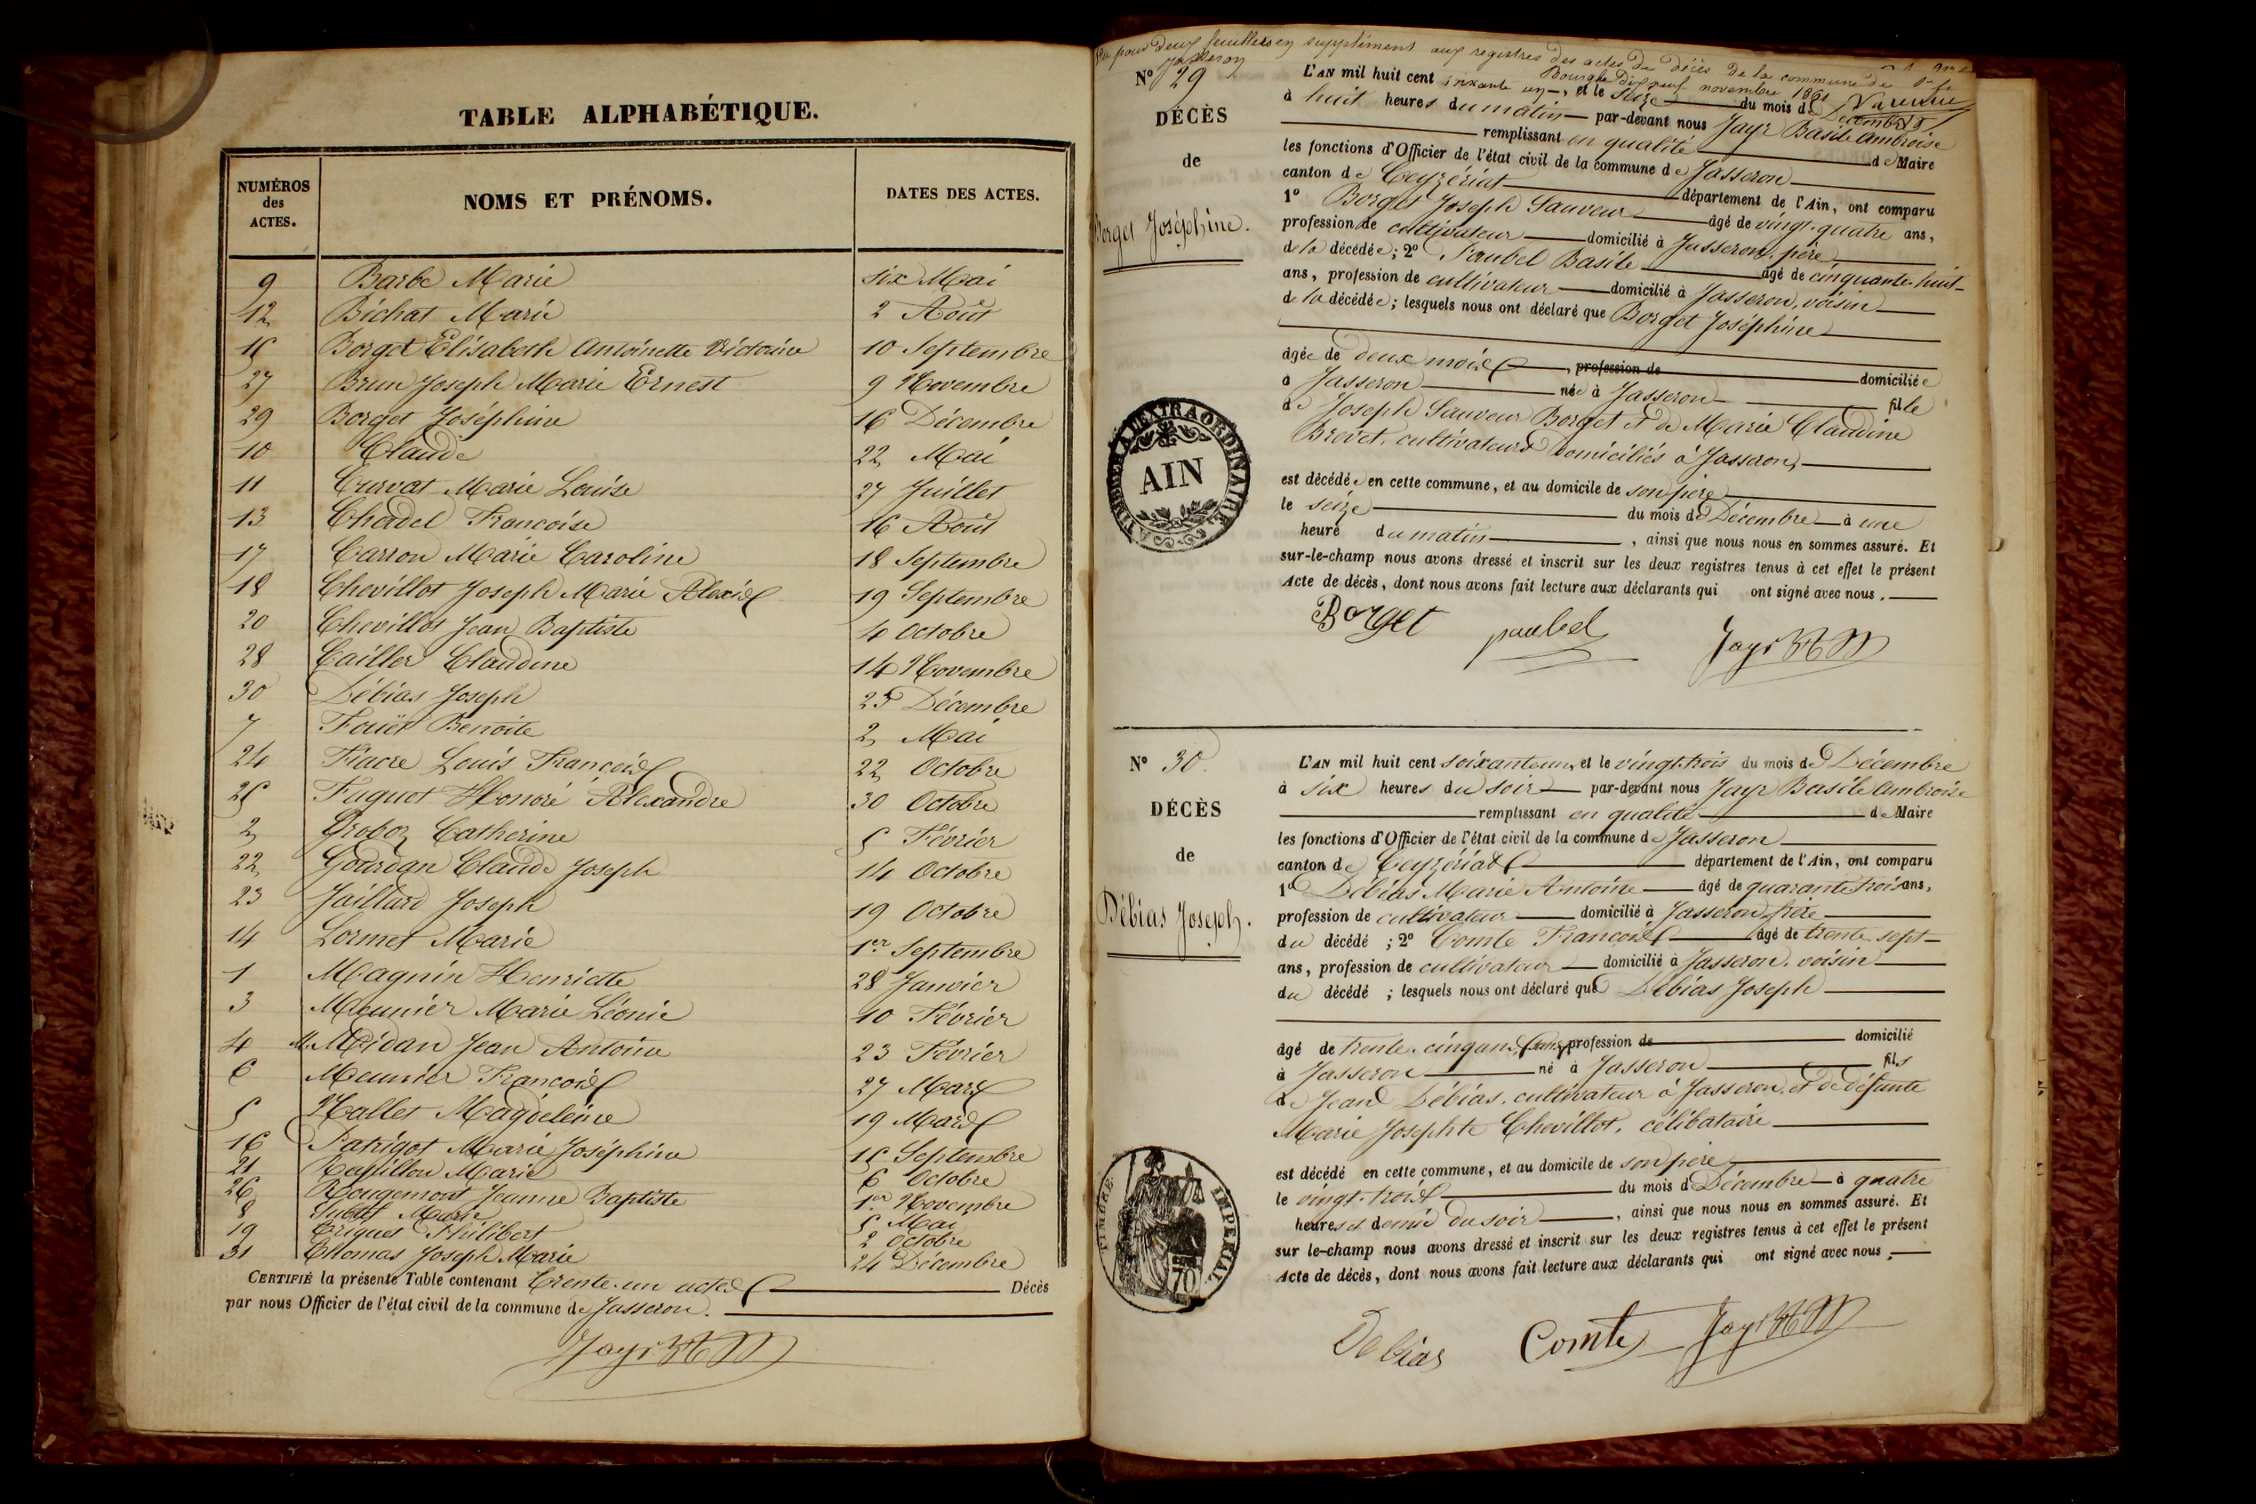 TABLE ALPHABÉTIQUE.
NUMÉROS des ACTES. NOMS ET PRÉNOMS. DATES DES ACTES.
9 Barbe Marie six Mai
12 Bichat Marie 2 Août
15 Borget Elisabeth Antoinette Victorine 10 Septembre
27 Brun Joseph Marie Ernest 9 Novembre
29 Borget Joséphine 16 Décembre
10 Claude 22 Mai
11 Curvat Marie Louise 27 Juillet
13 Chadel Françoise 16 Août
17 Carron Marie Caroline 18 Septembre
18 Chevillot Joseph Marie Alexis 19 Septembre
20 Chevillot Jean Baptiste 4 Octobre
28 Cailler Claudine 14 Novembre
30 Débias Joseph 23 Décembre
7 Benoite 2 Mai
24 Fiacre Louis François 22 Octobre
25 Faguet Honoré Alexandre 30 Octobre
2 Groboz Catherine 5 Février
22 Gourdan Claude Joseph 14 Octobre
23 Jaillard Joseph 19 Octobre
14 Lormet Marie 1er Septembre
1 Magnin Henriette 28 Janvier
3 Meunier Marie Léonie 10 Février
4 Midan Jean Antoine 23 Février
6 Meunier François 27 Mars
5 Nallet Magdeleine 19 Mars
16 Patrigot Marie Joséphine 15 Septembre
21 Papillon Marie 6 Octobre
26 Rougemont Jeanne Baptiste 1er Novembre
8 Marie 5 Mai
19 Philibert 2 Octobre
31 Thomas Joseph Marie 24 Décembre
CERTIFIÉ la présente Table contenant Trente-un actes Décès
par nous Officier de l'état civil de la commune de Jasseron.
Jayr
pour deux feuilles en supplément aux registres des actes de décès de la commune de
Jasseron Bourg le dix neuf novembre 1861
N° 29
DÉCÈS
de
Borget Joséphine.
L'AN mil huit cent soixante un, et le seize du mois de Décembre
à huit heures du matin par-devant nous Jayr Basile Ambroise
remplissant en qualité de Maire
les fonctions d'Officier de l'état civil de la commune de Jasseron
canton de Ceyzériat département de l'Ain, ont comparu
1° Borget Joseph Sauveur âgé de vingt-quatre ans,
profession de cultivateur domicilié à Jasseron, père
de la décédée; 2° Paubel Basile âgé de cinquante-huit
ans, profession de cultivateur domicilié à Jasseron, voisin
de la décédée; lesquels nous ont déclaré que Borget Joséphine
âgée de deux mois, profession de domiciliée
à Jasseron née à Jasseron fille
de Joseph Sauveur Borget et de Marie Claudine
Brevet, cultivateurs domiciliés à Jasseron,
est décédée en cette commune, et au domicile de son père
le seize du mois de Décembre à une
heure du matin, ainsi que nous nous en sommes assuré. Et
sur-le-champ nous avons dressé et inscrit sur les deux registres tenus à cet effet le présent
Acte de décès, dont nous avons fait lecture aux déclarants qui ont signé avec nous.
Borget paubel Jayr
TIMBRE A L'EXTRAORDINAIRE
AIN
N° 30.
DÉCÈS
de
Débias Joseph.
L'AN mil huit cent soixante un, et le vingt-trois du mois de Décembre
à six heures du soir par-devant nous Jayr Basile Ambroise
remplissant en qualité de Maire
les fonctions d'Officier de l'état civil de la commune de Jasseron
canton de Ceyzériat département de l'Ain, ont comparu
1° Débias Marie Antoine âgé de quarante trois ans,
profession de cultivateur domicilié à Jasseron, frère
du décédé; 2° Comte François âgé de trente-sept
ans, profession de cultivateur domicilié à Jasseron, voisin
du décédé; lesquels nous ont déclaré que Débias Joseph
âgé de trente-cinq ans, profession de domicilié
à Jasseron né à Jasseron fils
de Jean Débias, cultivateur à Jasseron, et de défunte
Marie Josephte Chevillot, célibataire
est décédé en cette commune, et au domicile de son père
le vingt-trois du mois de Décembre à quatre
heures et demie du soir, ainsi que nous nous en sommes assuré. Et
sur le-champ nous avons dressé et inscrit sur les deux registres tenus à cet effet le présent
Acte de décès, dont nous avons fait lecture aux déclarants qui ont signé avec nous.
Debias Comte Jayr
TIMBRE IMPERIAL
70